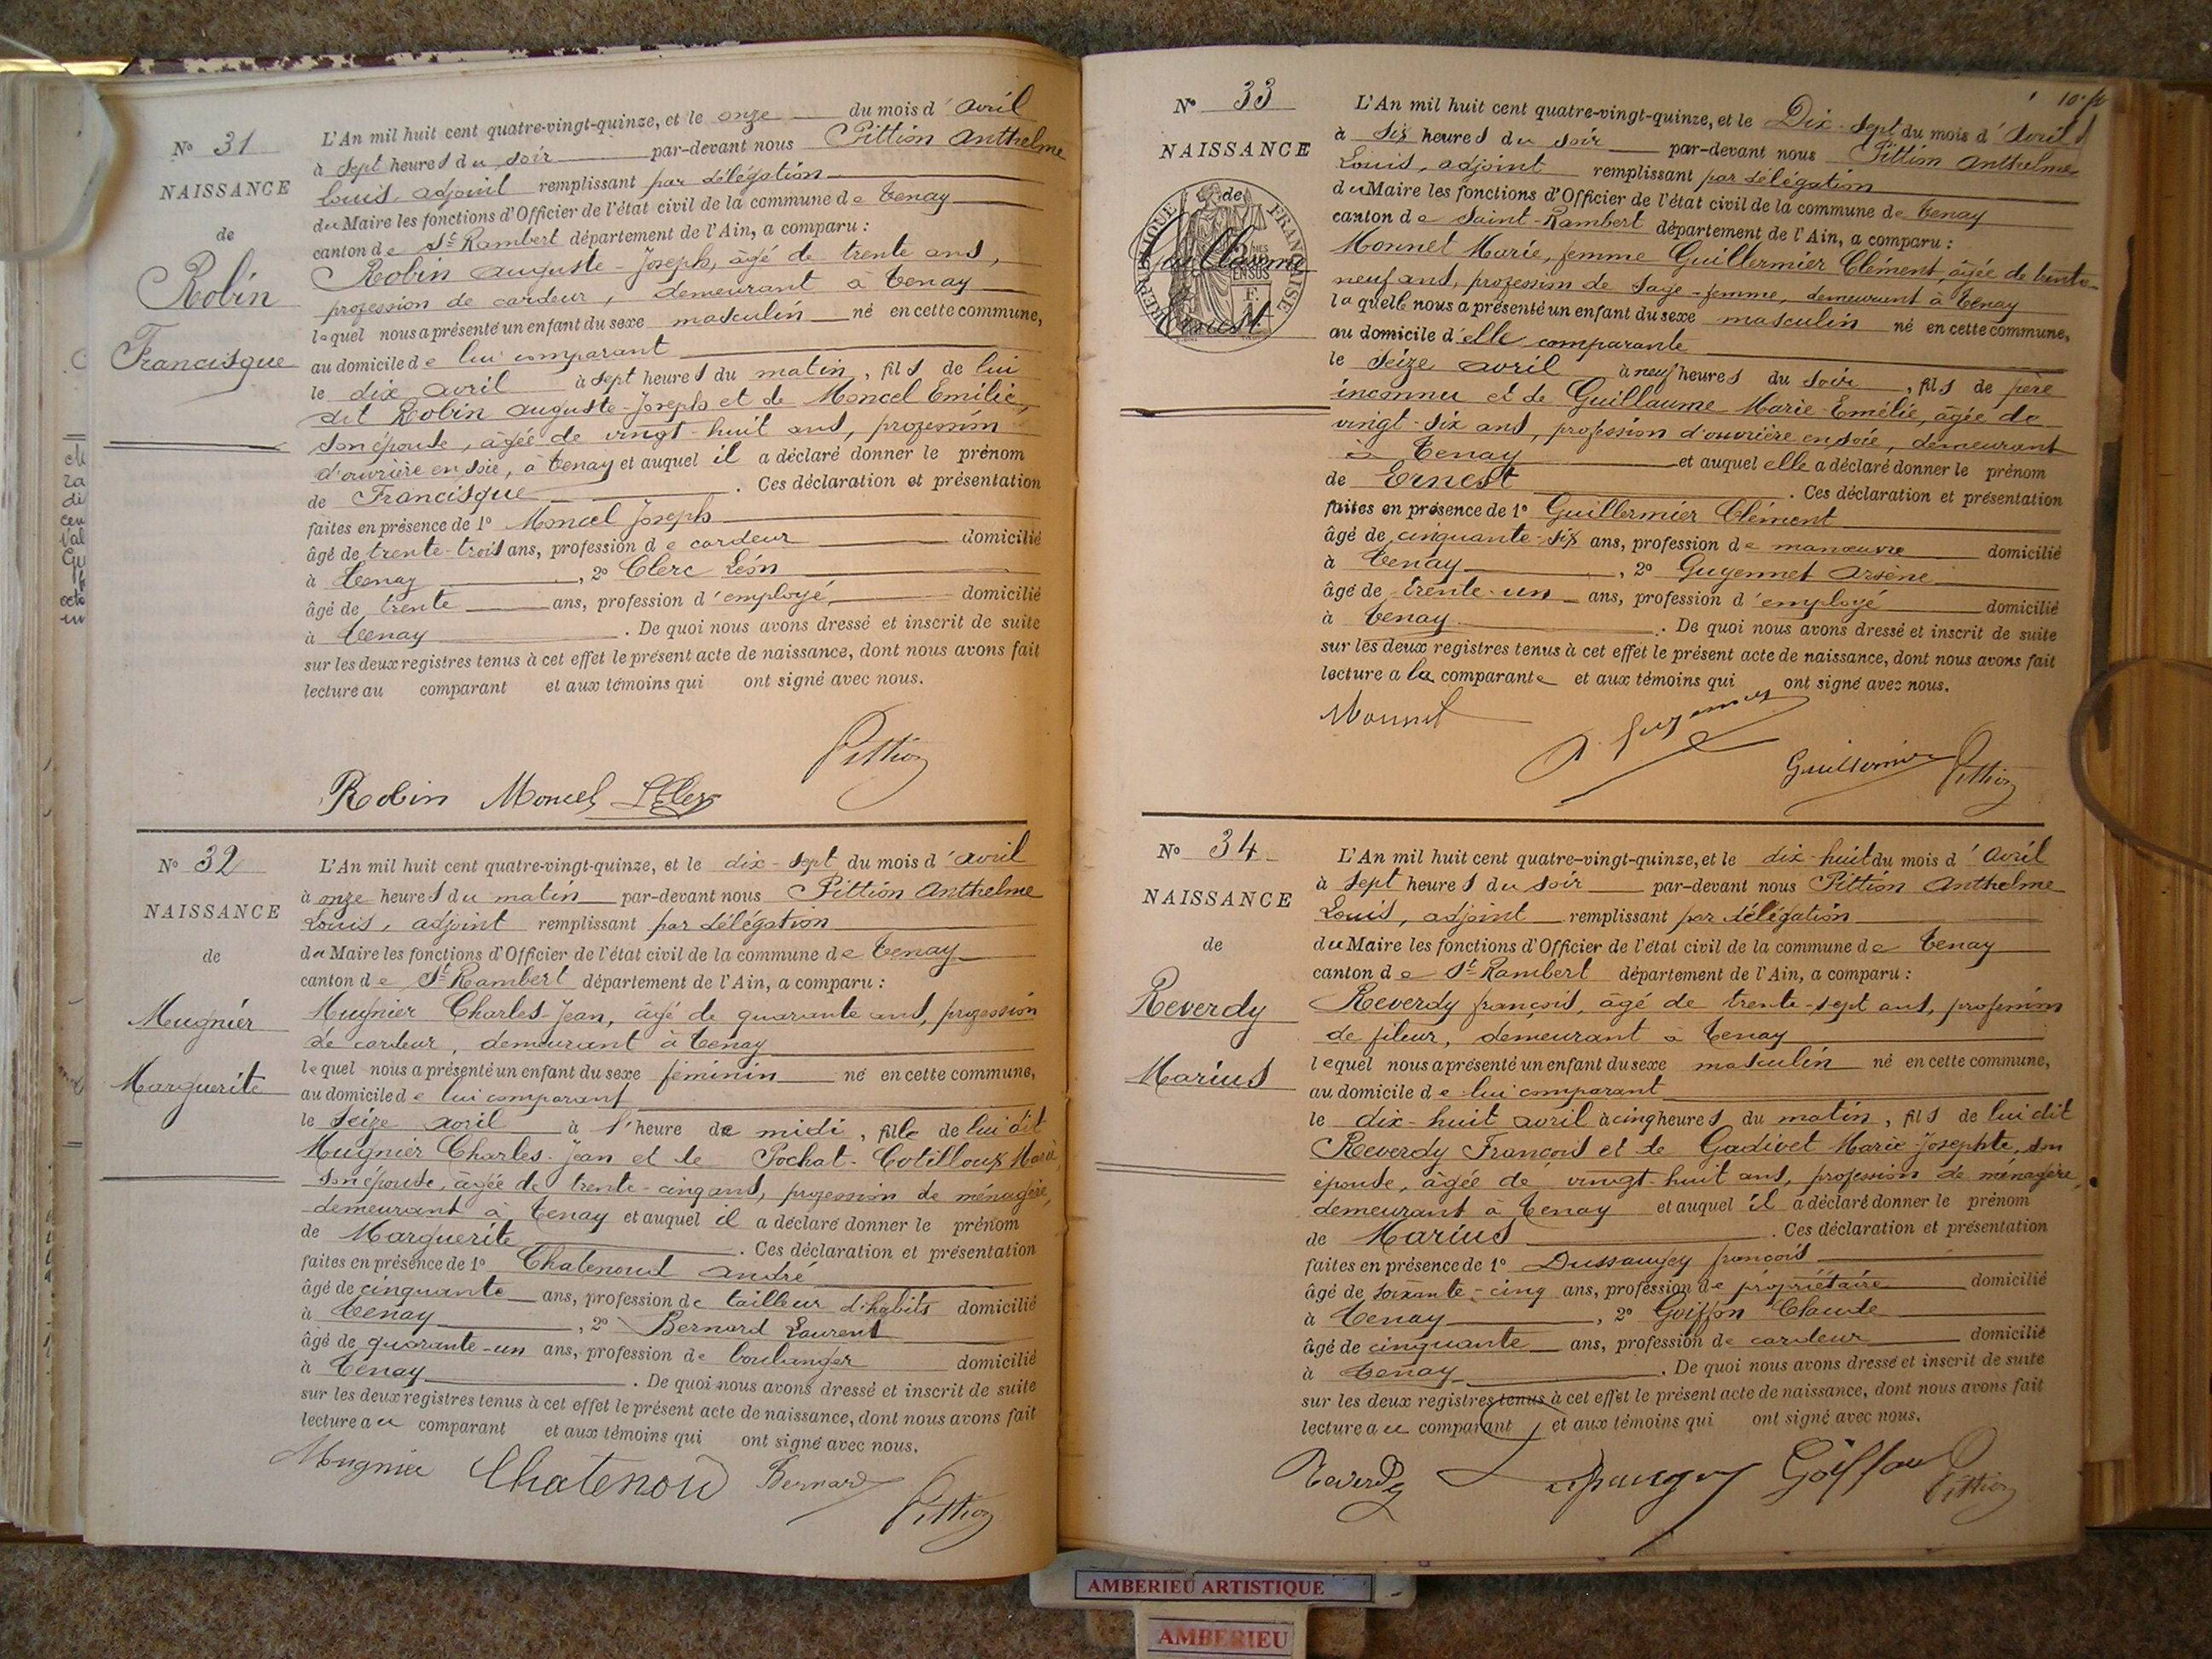 N° 31
NAISSANCE
de
Robin
Francisque
L'An mil huit cent quatre-vingt-quinze, et le onze du mois d'avril
à sept heures du soir par-devant nous Pittion Anthelme
Louis, adjoint remplissant par délégation
du Maire les fonctions d'Officier de l'état civil de la commune de Tenay
canton de St Rambert département de l'Ain, a comparu :
Robin Auguste-Joseph, âgé de trente ans,
profession de cardeur, demeurant à Tenay
lequel nous a présenté un enfant du sexe masculin né en cette commune,
au domicile de lui comparant
le dix avril à sept heures du matin, fils de lui
dit Robin Auguste-Joseph et de Moncel Emilie,
son épouse, âgée de vingt-huit ans, profession
d'ouvrière en soie, à Tenay et auquel il a déclaré donner le prénom
de Francisque . Ces déclaration et présentation
faites en présence de 1° Moncel Joseph
âgé de trente-trois ans, profession de cardeur domicilié
à Tenay , 2° Clerc Léon
âgé de trente ans, profession d'employé domicilié
à Tenay . De quoi nous avons dressé et inscrit de suite
sur les deux registres tenus à cet effet le présent acte de naissance, dont nous avons fait
lecture au comparant et aux témoins qui ont signé avec nous.
Pittion
Robin Moncel LClerc
N° 32
NAISSANCE
de
Mugnier
Marguerite
L'An mil huit cent quatre-vingt-quinze, et le dix-sept du mois d'avril
à onze heures du matin par-devant nous Pittion Anthelme
Louis, adjoint remplissant par délégation
du Maire les fonctions d'Officier de l'état civil de la commune de Tenay
canton de St Rambert département de l'Ain, a comparu :
Mugnier Charles-Jean, âgé de quarante ans, profession
de cardeur, demeurant à Tenay
lequel nous a présenté un enfant du sexe féminin né en cette commune,
au domicile de lui comparant
le seize avril à l'heure de midi, fille de lui dit
Mugnier Charles-Jean et de Pochat-Cotilloux Maria,
son épouse, âgée de trente-cinq ans, profession de ménagère,
demeurant à Tenay et auquel il a déclaré donner le prénom
de Marguerite . Ces déclaration et présentation
faites en présence de 1° Chatenoud André
âgé de cinquante ans, profession de tailleur d'habits domicilié
à Tenay , 2° Bernard Laurent
âgé de quarante-un ans, profession de boulanger domicilié
à Tenay . De quoi nous avons dressé et inscrit de suite
sur les deux registres tenus à cet effet le présent acte de naissance, dont nous avons fait
lecture au comparant et aux témoins qui ont signé avec nous.
Mugnier Chatenoud Bernard Pittion
N° 33
NAISSANCE
de
Guillaume
Ernest
RÉPUBLIQUE FRANÇAISE
L'An mil huit cent quatre-vingt-quinze, et le Dix-sept du mois d'avril
à six heures du soir par-devant nous Pittion Anthelme
Louis, adjoint remplissant par délégation
du Maire les fonctions d'Officier de l'état civil de la commune de Tenay
canton de Saint-Rambert département de l'Ain, a comparu :
Monnet Marie, femme Guillermier Clément, âgée de trente-
neuf ans, profession de sage-femme, demeurant à Tenay
laquelle nous a présenté un enfant du sexe masculin né en cette commune,
au domicile d'elle comparante
le seize avril à neuf heures du soir, fils de père
inconnu et de Guillaume Marie-Emélie, âgée de
vingt-six ans, profession d'ouvrière en soie, demeurant
à Tenay et auquel elle a déclaré donner le prénom
de Ernest . Ces déclaration et présentation
faites en présence de 1° Guillermier Clément
âgé de cinquante-six ans, profession de manœuvre domicilié
à Tenay , 2° Guyennet Arsène
âgé de trente-un ans, profession d'employé domicilié
à Tenay . De quoi nous avons dressé et inscrit de suite
sur les deux registres tenus à cet effet le présent acte de naissance, dont nous avons fait
lecture a la comparante et aux témoins qui ont signé avec nous.
Monnet A. Guyennet Guillermier Pittion
N° 34
NAISSANCE
de
Reverdy
Marius
L'An mil huit cent quatre-vingt-quinze, et le dix-huit du mois d'avril
à sept heures du soir par-devant nous Pittion Anthelme
Louis, adjoint remplissant par délégation
du Maire les fonctions d'Officier de l'état civil de la commune de Tenay
canton de St Rambert département de l'Ain, a comparu :
Reverdy françois, âgé de trente-sept ans, profession
de fileur, demeurant à Tenay
lequel nous a présenté un enfant du sexe masculin né en cette commune,
au domicile de lui comparant
le dix-huit avril à cinq heures du matin, fils de lui dit
Reverdy François et de Gadivet Marie-Josephte, son
épouse, âgée de vingt-huit ans, profession de ménagère,
demeurant à Tenay et auquel il a déclaré donner le prénom
de Marius . Ces déclaration et présentation
faites en présence de 1° Dussaugey françois
âgé de soixante-cinq ans, profession de propriétaire domicilié
à Tenay , 2° Goiffon Claude
âgé de cinquante ans, profession de cardeur domicilié
à Tenay . De quoi nous avons dressé et inscrit de suite
sur les deux registres tenus à cet effet le présent acte de naissance, dont nous avons fait
lecture au comparant et aux témoins qui ont signé avec nous.
Reverdy Goiffon Pittion
AMBERIEU ARTISTIQUE
AMBERIEU